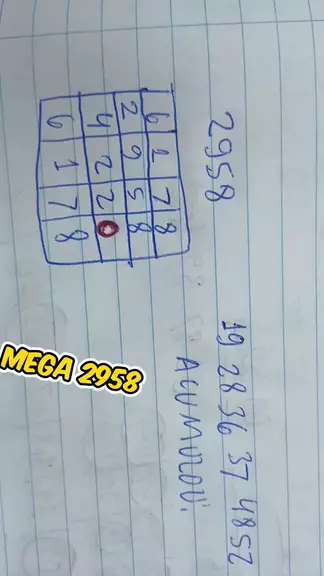 2958 19 28 36 37 48 52
ACUMULOU!
6 1 7 8
2 9 5 8
4 2 2 0
6 1 7 8
MEGA 2958